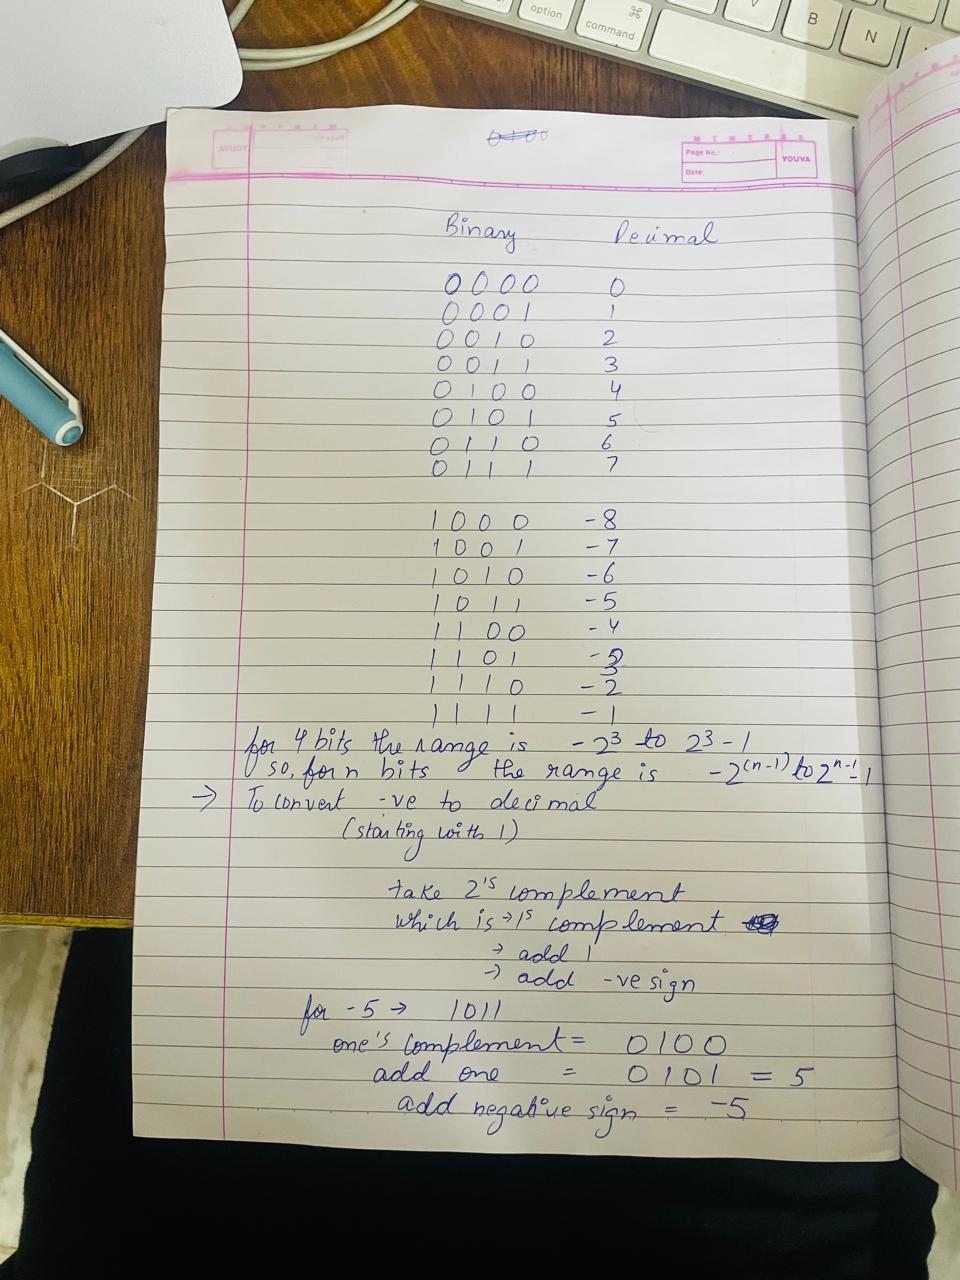 option
⌘
command
V
B
N
YOUVA
Page No.:
Date:
YOUVA
Binary Decimal
0000 0
0001 1
0010 2
0011 3
0100 4
0101 5
0110 6
0111 7
1000 -8
1001 -7
1010 -6
1011 -5
1100 -4
1101 -3
1110 -2
1111 -1
for 4 bits the range is -2³ to 2³-1
so, for n bits the range is -2⁽ⁿ⁻¹⁾ to 2ⁿ⁻¹-1
→ To convert -ve to decimal
(starting with 1)
take 2's complement
which is → 1's complement
→ add 1
→ add -ve sign
for -5 → 1011
one's complement = 0100
add one = 0101 = 5
add negative sign = -5